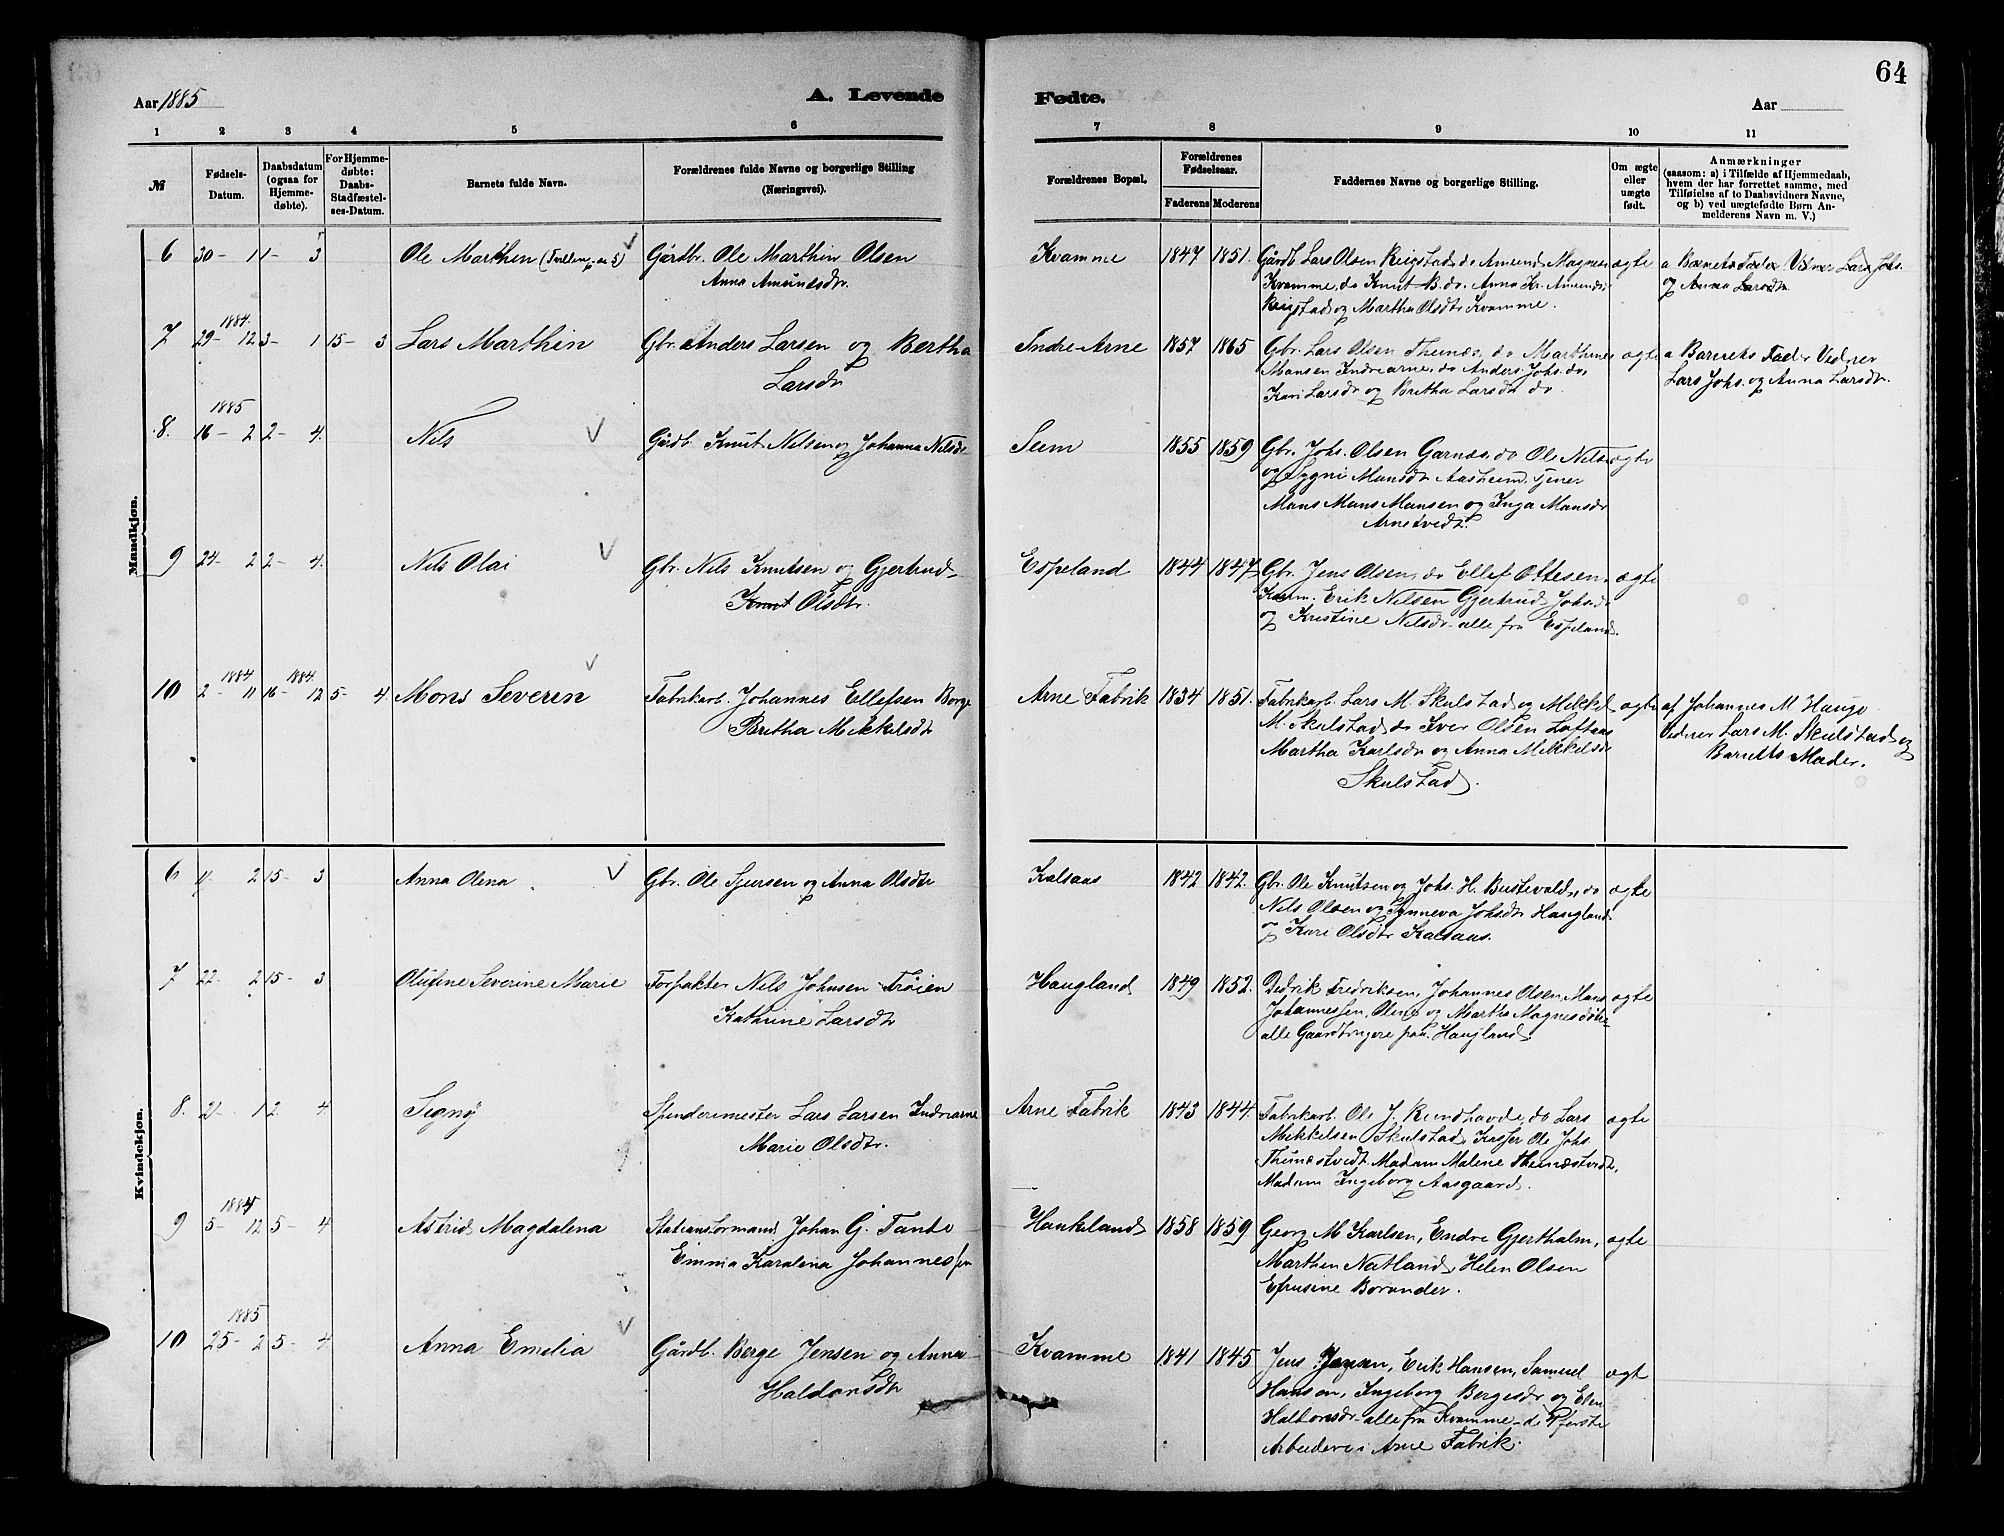 64
Aar 1885 A. Levende Fødte. Aar
1 2 3 4 5 6 7 8 9 10 11
№ Fødsels-Datum. Daabsdatum (ogsaa for Hjemme-døbte). For Hjemme-døbte: Daabs-Stadfæstel-ses-Datum. Barnets fulde Navn. Forældrenes fulde Navne og borgerlige Stilling (Næringsvei). Forældrenes Bopæl. Forældrenes Fødselsaar. Faderens Moderens Faddernes Navne og borgerlige Stilling. Om ægte eller uægte født. Anmærkninger (saasom: a) i Tilfælde af Hjemmedaab, hvem der har forrettet samme, med Tilføielse af to Daabsvidners Navne, og b) ved uægtefødte Børn An-melderens Navn m. V.)
Mandkjøn.
6 30- 1 1- 3 Ole Marthin Gårdbr. Ole Marthin Olsen Kvamme 1847 1851. Gårdb. Lars Olsen Reigstad, do Amund Magnes ægte a Barnets Fader Vidner Lars Johs.
Anna Amundsdtr. Kvamme, do Knut B. do. Anna Kr. Amunds. og Anna Larsdtr.
Reigstad og Martha Olsdtr Kvamme.
1884
7 29- 12 3- 1 15- 3 Lars Marthin Gbr. Anders Larsen og Bertha Indre-Arne 1857 1865 Gbr. Lars Olsen Thunes, do Marthines ægte a Barnets Fader Vidner
Larsdtr Mansen Indrearne, do Anders Johs. do, Lars Johs. og Anna Larsdtr.
Kari Larsdtr og Britha Larsdtr do.
1885
8. 16- 2 2- 4. Nils Gårdb. Knut Nilsen og Johanna Nilsdtr Seim 1855 1859 Gbr. Johs. Olsen Garnæs, do Ole Nils ægte
og Sygni Mansdtr Aasheim, Tjener
Mans Mans Mansen og Inga Mansdtr
Arnetvedt.
9 24- 2 2- 4. Nils Olai Gbr. Nils Knutsen og Gjertrud Espeland 1844 1847 Gbr. Jens Olsen, do Ellef Ottesen, ægte
Knut Olsdtr. Erik Nilsen Gjertrud Johs. do
og Kristine Nilsdtr alle fra Espeland.
1884 1884
10 2- 11 16- 12 5- 4. Mons Severin Fabrikarb. Johannes Ellefsen Borge Arne Fabrik 1834 1851. Fabrikarb. Lars M. Skulstad og Mikkel ægte af Johannes M Hauge
Britha Mikkelsdtr M. Skulstad, do Iver Olsen Loftaas Vidner Lars M. Skulstad og
Martha Karlsdtr og Anna Mikkelsdtr Barnets Moder.
Skulstad.
Kvindekjøn.
6 4- 2 15- 3 Anna Olena Gbr. Ole Sjursen og Anna Olsdtr Kalsaas 1842 1842. Gbr. Ole Knutsen og Johs. H. Bustevold, do ægte
Nils Olsen og Synneva Johsdtr Haugland
og Kari Olsdtr Kalsaas.
7 22- 2 15- 3 Olufine Severine Marie Forpakter Nils Johnsen Trøien Haugland 1849 1852. Didrik Fredriksen, Johannes Olsen Mans ægte
Kathrine Larsdtr Johannessen, Olena og Martha Magnesdøtre
alle Gaardbrugere paa Haugland.
8. 21- 1 2 4. Signÿ Spindemester Lars Larsen Indrearne Arne Fabrik 1843 1844. Fabrikarb. Ole J. Rundhovde, do Lars ægte
Marie Olsdtr. Mikkelsen Skulstad, Ole Johs.
Thunestvedt Madam Malene Thunestvedt,
Madam Ingeborg Aasgaard.
1884
9 5- 12 5- 4 Astrid Magdalena Stationsformand Johan G. Tante Haukeland 1858 1859 Georg M Karlsen, Endre Gjertholm, ægte
Emma Karolina Johannessen Marthin Natland, Helen Olsen
Efrusine Borander.
1885
10 25- 2 5- 4. Anna Emelia Gårdb. Berge Jensen og Anna Kvamme 1841 1845 Jens Jensen, Erik Hansen, Samuel ægt
Haldorsdtr Hansen, Ingeborg Bergesdtr og Elen
Haldorsdtr alle fra Kvamme de 4 første
Arbeidere i Arne Fabrik.